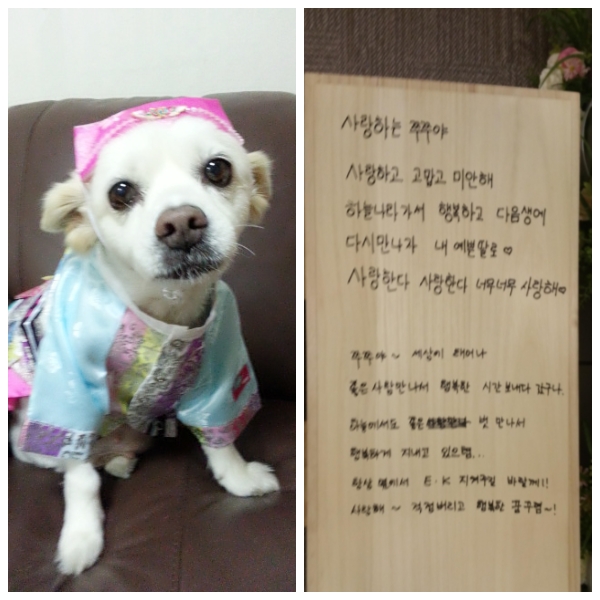 사랑하는 쭈쭈야
사랑하고 고맙고 미안해
하늘나라가서 행복하고 다음생에
다시만나자 내 예쁜딸로♡
사랑한다 사랑한다 너무너무 사랑해♡
쭈쭈야~ 세상에 태어나
좋은사람만나서 행복한 시간보내다 갔구나.
하늘에서도 좋은 벗 만나서
행복하게 지내고 있으렴...
항상 옆에서 E.K 지켜주길 바랄께!!
사랑해~ 걱정버리고 행복한 꿈꾸렴~!